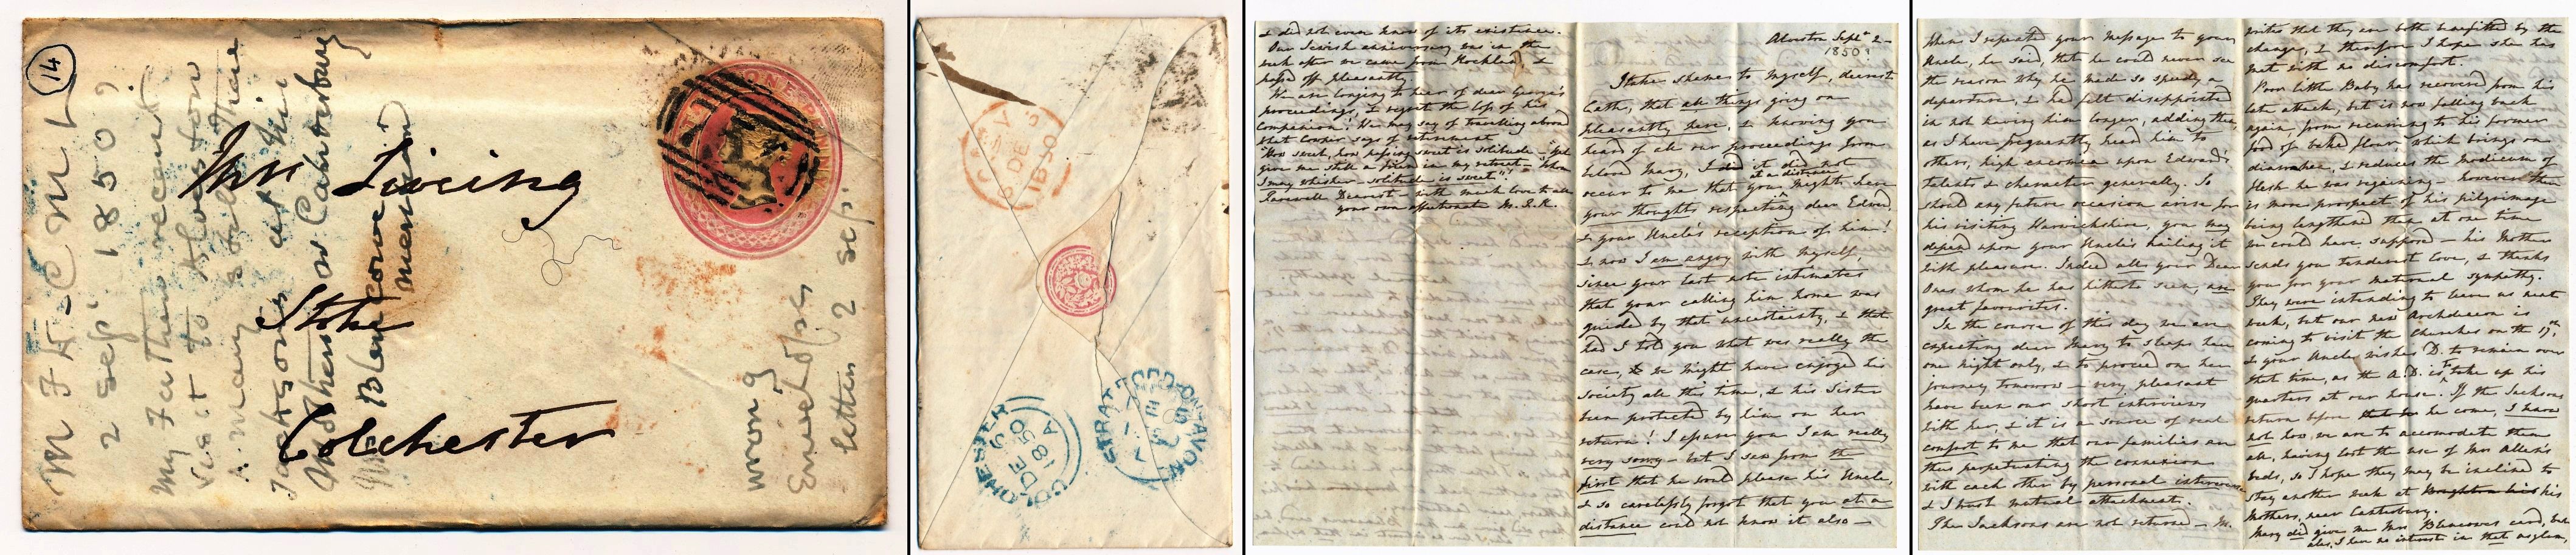 14
M F K - C M L
2 Sep' 1850?
My Father recent
visit to Alveston
A. Mary still there
Jacksons at his
Mothers nr Canterbury
Mrs Blencowe
mention
wrong
Envelope
letter 2 Sep.
ONE PENNY
Mrs Liveing
Stoke
Colchester
5 DE 5
1850
COLCHESTER
DE 6
1850
A
STRATFORD-ON-AVON
I did not even know of its existence.
Our Jewish anniversary was in the
week after we came from Hockley, &
passed off pleasantly.
We are longing to hear of dear George's
proceedings, & regrets the loss of his
Companion! He may say of travelling abroad
what Cowper says of retirement
"How sweet, how passing sweet is solitude - Yet
give me still a friend in my retreat - whom
I may whisper - solitude is sweet"!
Farewell Dearest with much love to all
your own affectionate M. F. K.
Alveston Septr 2 -
1850?
I take shame to myself, dearest
Cath, that all things going on
pleasantly here, & knowing you
heard of all our proceedings from
beloved Mary, it did not
occur to me that you at a distance might have
your thoughts respecting dear Edward,
& your Uncle's reception of him!
I now I am angry with myself,
since your last note intimates
that your calling him home was
guided by that uncertainty, & that
had I told you what was really the
case, we might have enjoyed his
society all this time, & his Sister
been protected by him on her
return! I assure you I am really
very sorry - but I saw from the
first that he would please his Uncle,
& so carelessly forgot that you at a
distance could not know it also -
When I repeated your message to your
Uncle, he said, that he could never see
the reason why he made so speedy a
departure, & he felt disappointed
in not having him longer, adding then,
as I have frequently heard him to
others, high encomia upon Edward's
talents & character generally. So
should any future occasion arise for
his visiting Warwickshire, you may
depend upon your Uncle's hailing it
with pleasure. Indeed all your Dear
Ones whom he has hitherto seen, are
great favourites.
In the course of this day we are
expecting dear Mary to sleep here
one night only, & to proceed on her
journey tomorrow - very pleasant
have been our short interviews
with her, & it is a source of real
comfort to me that our families are
thus perpetuating the connexion
with each other by personal intercourse
& I trust mutual attachment.
The Jacksons are not returned - M.
writes that they are both benefitted by the
change, & therefore I hope she has
met with no discomfort.
Poor little Baby has recovered from his
late attack, but is now falling back
again, from recurring to his former
food of baked flour which brings on
diarrhœa, & reduces the modicum of
flesh he was regaining - however there
is more prospect of his pilgrimage
being lengthened than at one time
we could have supposed - his Mother
sends you tenderest love, & thanks
you for your maternal sympathy.
They were intending to leave us next
week, but our new Archdeacon is
coming to visit the Churches on the 17th.
& your Uncle wishes D. to remain over
that time, as the A.D. is to take up his
quarters at our house. If the Jacksons
return before he come, I know
not how we are to accomodate them
all, having lost the use of Mrs Allen's
beds, so I hope they may be inclined to
stay another week at his
Mothers, near Canterbury.
Mary did give me Mrs Blencowe's card, but
alas, I have no interest in that asylum,